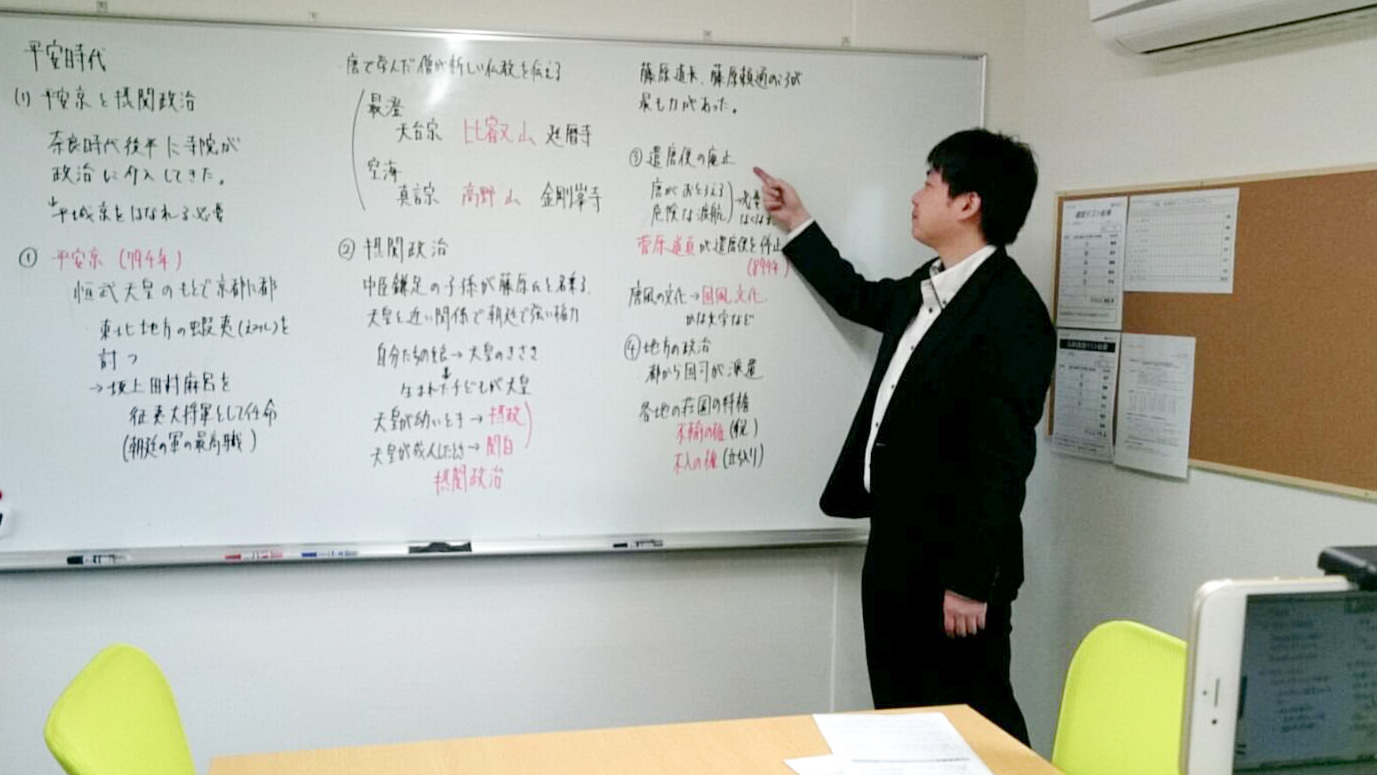 平安時代
(1) 平安京と摂関政治
奈良時代後半に寺院が
政治に介入してきた。
平城京をはなれる必要
① 平安京 (794年)
桓武天皇のもとで京都に都
東北地方の蝦夷(えみし)を
討つ
→坂上田村麻呂を
征夷大将軍として任命
(朝廷の軍の最高職)
唐で学んだ僧が新しい仏教を伝える
最澄
天台宗 比叡山 延暦寺
空海
真言宗 高野山 金剛峯寺
② 摂関政治
中臣鎌足の子孫が藤原氏を名乗る、
天皇と近い関係で朝廷で強い権力
自分たちの娘→天皇のきさき
↓
生まれた子どもが天皇
天皇が幼いとき→摂政
天皇が成人したとき→関白
摂関政治
藤原道長、藤原頼通のころが
最も力があった。
③ 遣唐使の廃止
唐がおとろえる
危険な渡航
→必要
なくなる
菅原道真が遣唐使を停止
(894年)
唐風の文化→国風文化
かな文字など
④ 地方の政治
都から国司が派遣
各地の荘園の特権
不輸の権 (税)
不入の権 (立ち入り)